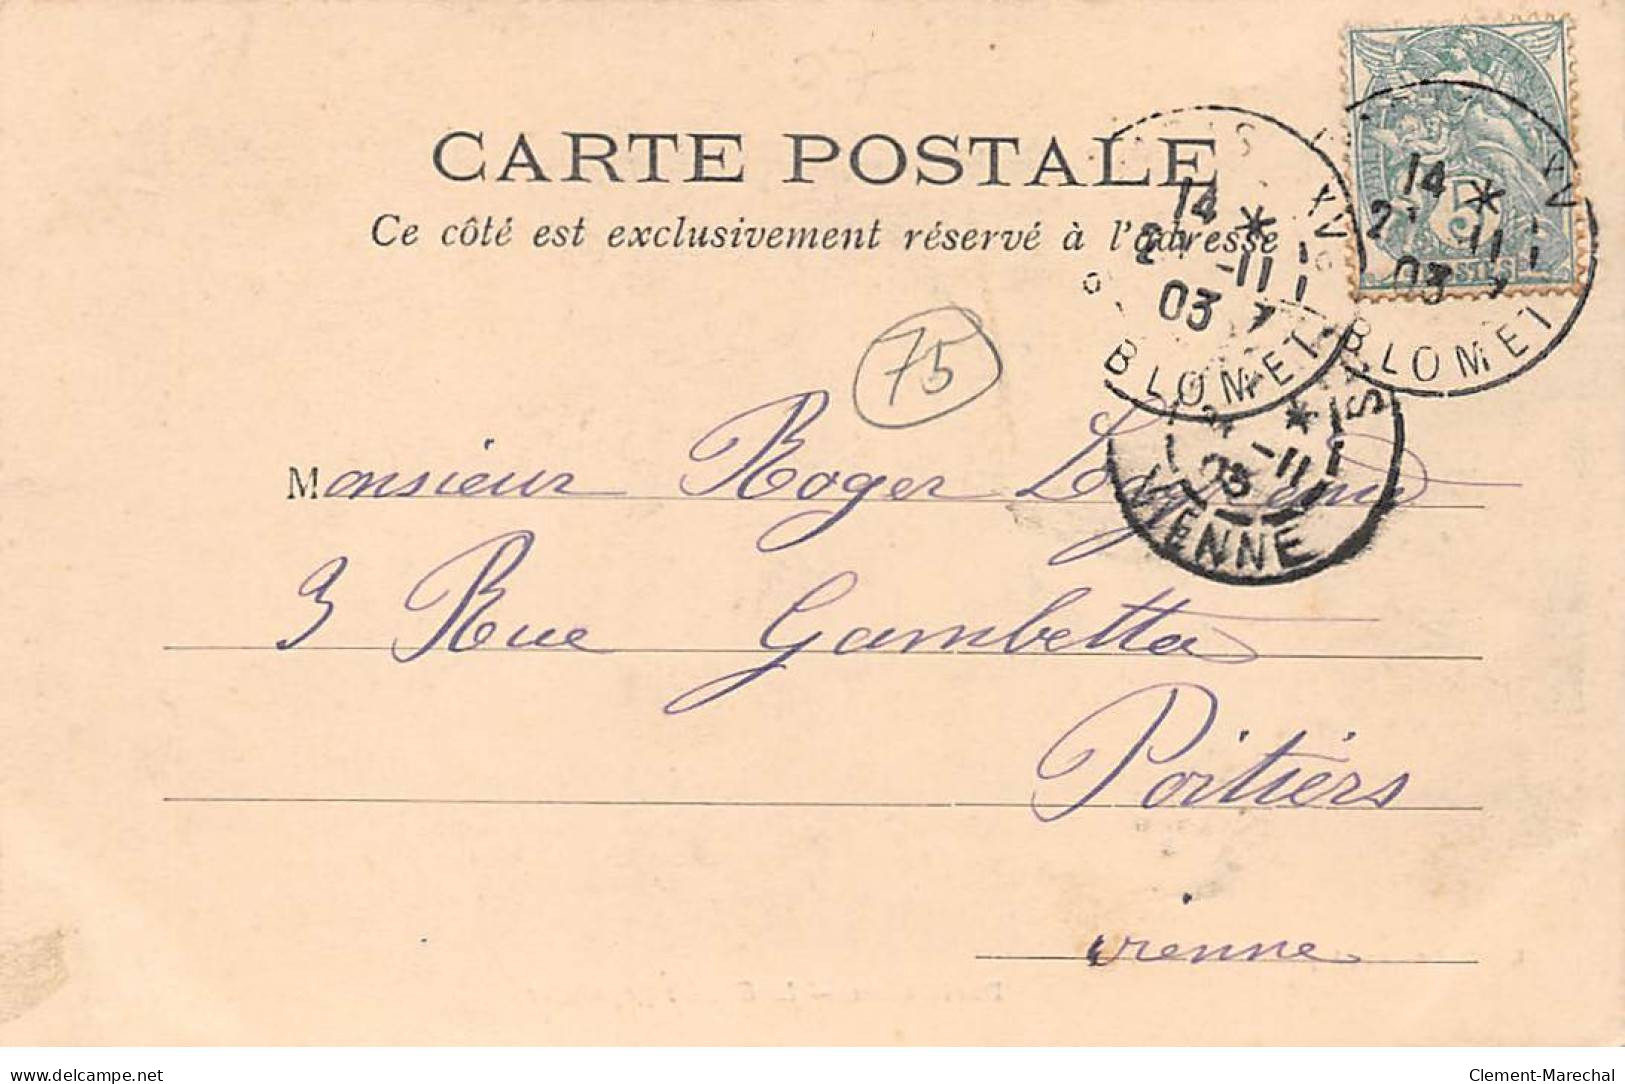 CARTE POSTALE
Ce côté est exclusivement réservé à l'adresse
14 *
-11
03
XV
BLOMET
14 *
-11
03
XV
BLOMET
5
POSTES
75
* -11
03
VIENNE
Monsieur Roger
3 Rue Gambetta
Poitiérs
vienne
www.delcampe.net
Clement-Marechal